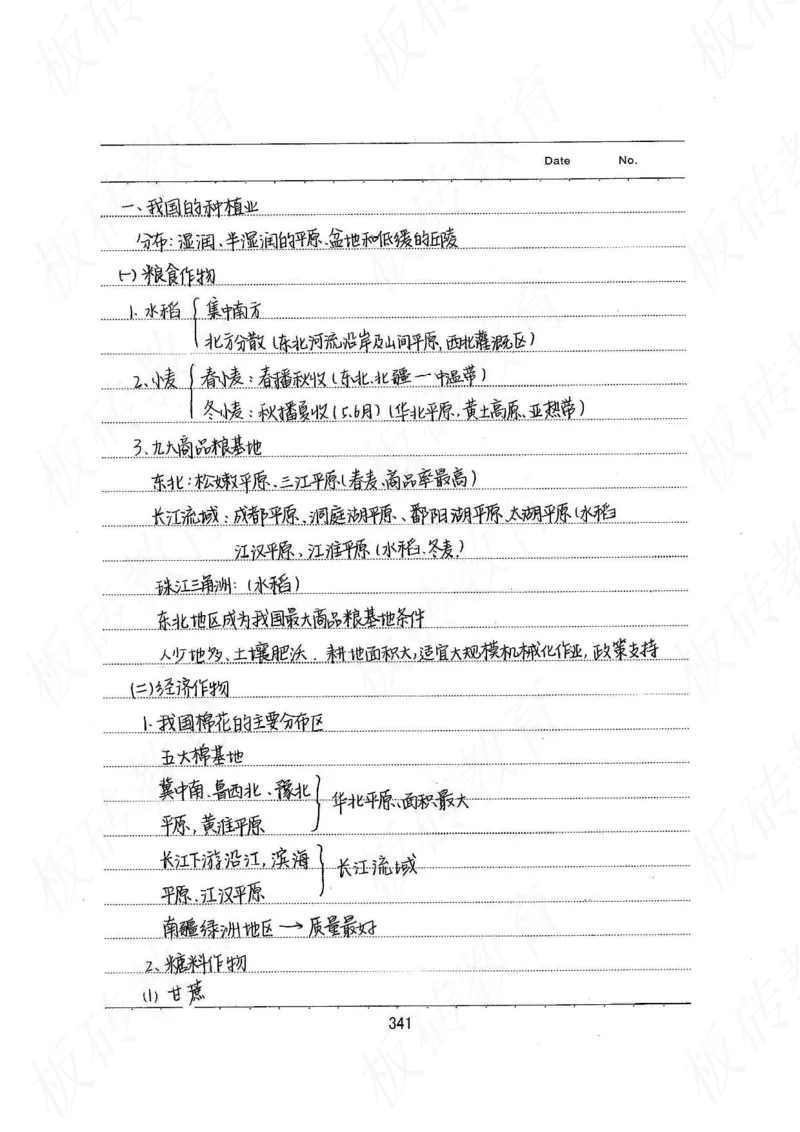 Date No.
一、我国的种植业
分布:湿润、半湿润的平原、盆地和低缓的丘陵
(一)粮食作物
1. 水稻 { 集中南方
北方分散(东北河流沿岸及山间平原,西北灌溉区)
2、小麦 { 春小麦:春播秋收(东北、北疆一中温带)
冬小麦:秋播夏收(5、6月)(华北平原、黄土高原、亚热带)
3、九大商品粮基地
东北:松嫩平原、三江平原(春麦、商品率最高)
长江流域:成都平原、洞庭湖平原、鄱阳湖平原、太湖平原(水稻
江汉平原、江淮平原(水稻、冬麦)
珠江三角洲:(水稻)
东北地区成为我国最大商品粮基地条件
人少地多、土壤肥沃、耕地面积大,适宜大规模机械化作业,政策支持
(二)经济作物
1. 我国棉花的主要分布区
五大棉基地
冀中南、鲁西北、豫北
平原,黄淮平原 } 华北平原、面积最大
长江下游沿江,滨海
平原、江汉平原 } 长江流域
南疆绿洲地区→质量最好
2、糖料作物
(1) 甘蔗
341
板砖教育